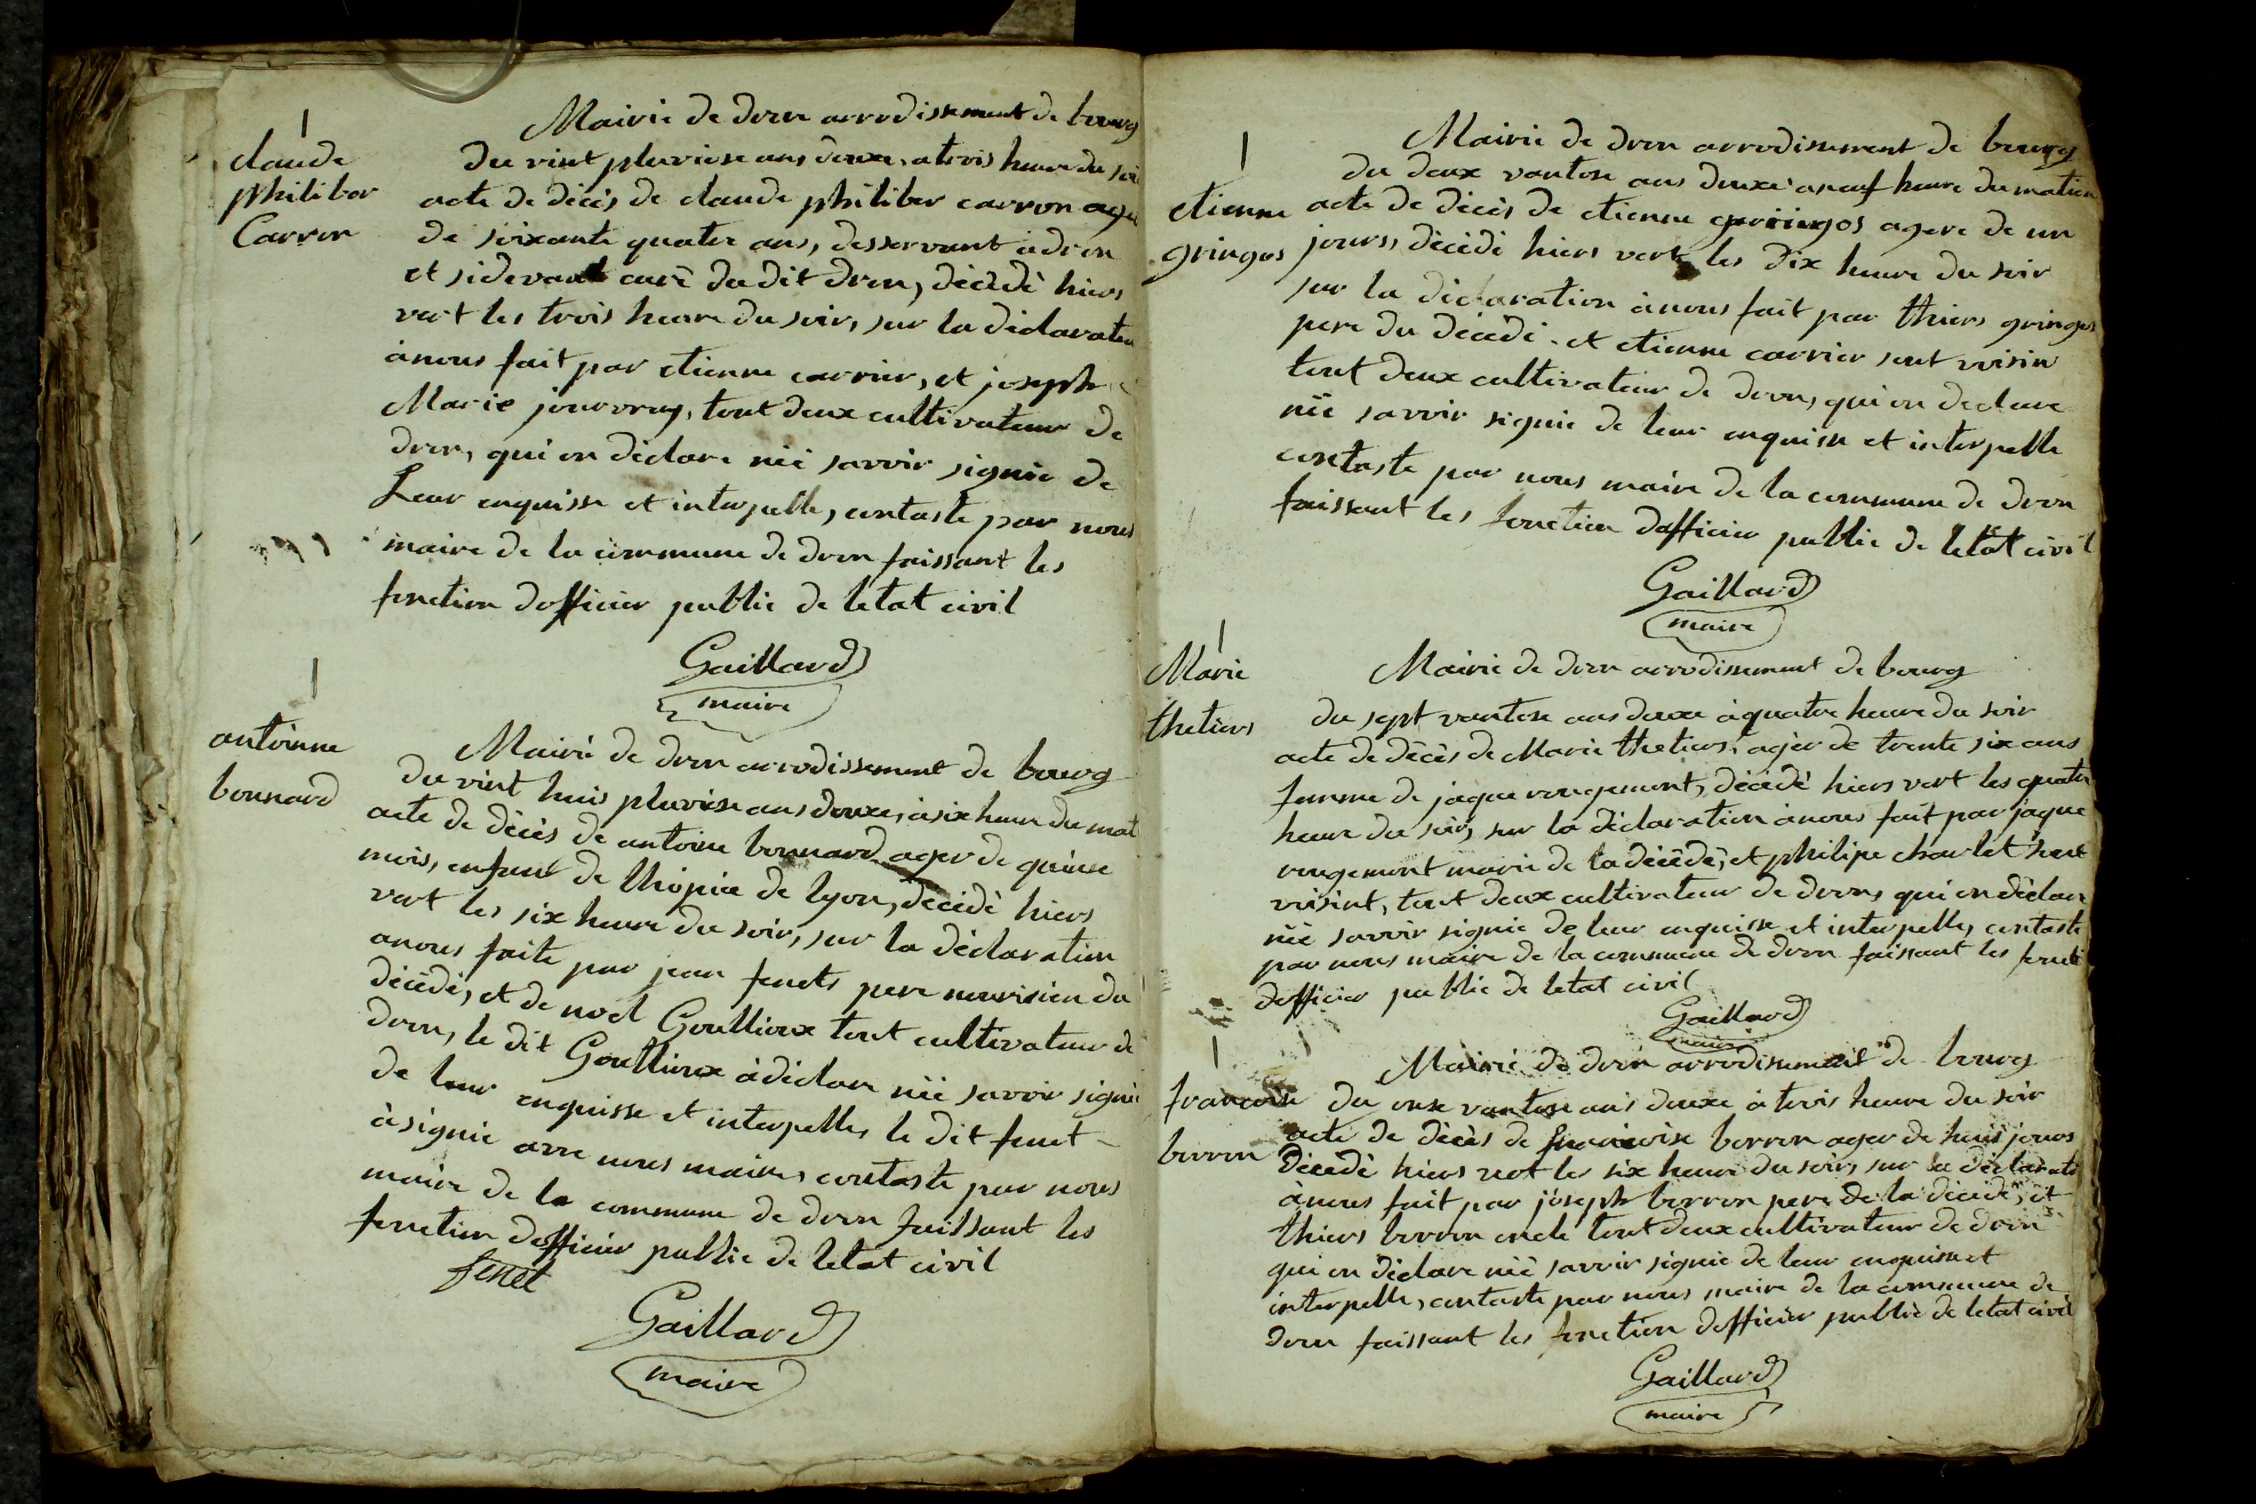 claude
philiber
Carron
Mairie de dron arrodissement de bourg
du vint pluviose ans douxe, a trois heure du soi
acte de décès de claude philiber carron age
de soixante quater ans, desservant à dron
et sidevant curé du dit dron, décédé hiers
vert les trois heare du soir, sur la déclaration
à nous fait par etienne carrier, et joseph
Marie jouvray, tout deux cultivateur de
dron, qui on déclare nèe savoir signie de
Leur enquisse et interpelle, contaste par nous
maire de la commune de dron faissant les
fonction dofficier public de letat civil
Gaillard
maire
antoinne
bonnard
Mairie de dron arrodissement de bourg
du vint huis pluviose ans douxe, à six heure du mat
acte de décès de antoine bonnard ager de quinse
mois, enfant de lhopice de lyon, décédé hiers
vert les six heure du soir, sur la déclaration
a nous faite par jean fenets pere nourisien du
décédé, et de noel Goullioux tout cultivateur de
dron, le dit Goullioux à déclare nèe savoir signie
de leur enquisse et interpelle, le dit fenet
à signie avec nous maire, contaste par nous
maire de la commune de dron faissant les
fonction dofficier public de letat civil
fenet
Gaillard
maire
etienne
gringos
Mairie de dron arrodissement de bourg
du deux vantose ans douxe a neuf heure du matien
acte de décès de etienne gringos agere de un
jours, décédé hiers vert les dix heure du soir
sur la déclaration à nous fait par thiers gringos
pere du décédé et etienne carrier sont voisin
tout deux cultivateur de dron, qui on declare
nèe savoir signie de leur enquisse et interpelle
contaste par nous maire de la commune de dron
faissant les fonction dofficier public de letat civil
Gaillard
maire
Marie
thetiers
Mairie de dron arrodissement de bourg
du sept vantose ans douxe à quatre heure du soir
acte de décès de Marie thetiers, ajèr de trente six ans
femme de jaque rougemont, décédé hiers vert les quater
heure du soir, sur la déclaration à nous fait par jaque
rougemont marie de la décédé, et philipe charlet sont
voisint, tout deux cultivateur de dron, qui on déclare
nèe savoir signie de leur enquisse et interpelle, contaste
par nous maire de la commune de dron faissant les foncti
dofficier public de letat civil
Gaillard
maire
francoise
borron
Mairie de dron arrodissement de bourg
du onse vantose ans douxe à trois heure du soir
acte de décès de francoise borron ager de huis jours
décédé hiers vert les six heure du soir, sur la déclarati
à nous fait par joseph borron pere de la décédé, et
thiers borron oncle tout deux cultivateur de dron
qui on déclare nèe savoir signie de leur enquisse et
interpelle, contaste par nous maire de la commune de
dron faissant les fonction dofficier public de letat civil
Gaillard
maire